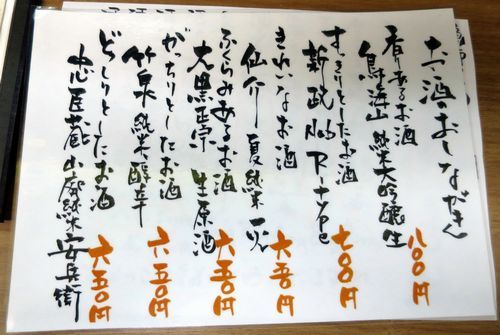 お酒のおしながき
香りあるお酒
鳥海山 純米大吟醸生 八〇〇円
すっきりとしたお酒
新政 No.6 R-type 七〇〇円
きれいなお酒
仙介 夏純米 一火 六五〇円
ふくらみあるお酒
大黒正宗 生原酒 六五〇円
がっちりとしたお酒
竹泉 純米醇辛 六五〇円
どっしりとしたお酒
忠臣蔵 山廃純米 安兵衛 六五〇円